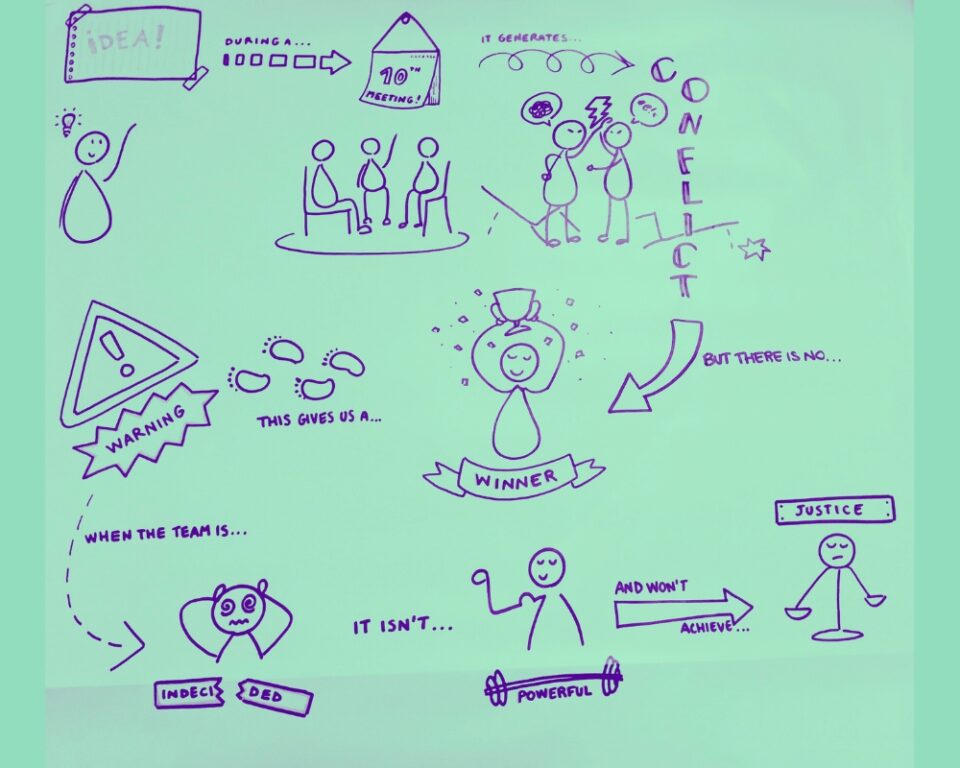 iDEA!
DURING A...
10TH
MEETING!
IT GENERATES...
CONFLICT
BUT THERE IS NO...
WINNER
THIS GIVES US A...
WARNING
WHEN THE TEAM IS...
INDECI DED
IT ISN'T...
POWERFUL
AND WON'T
ACHIEVE...
JUSTICE